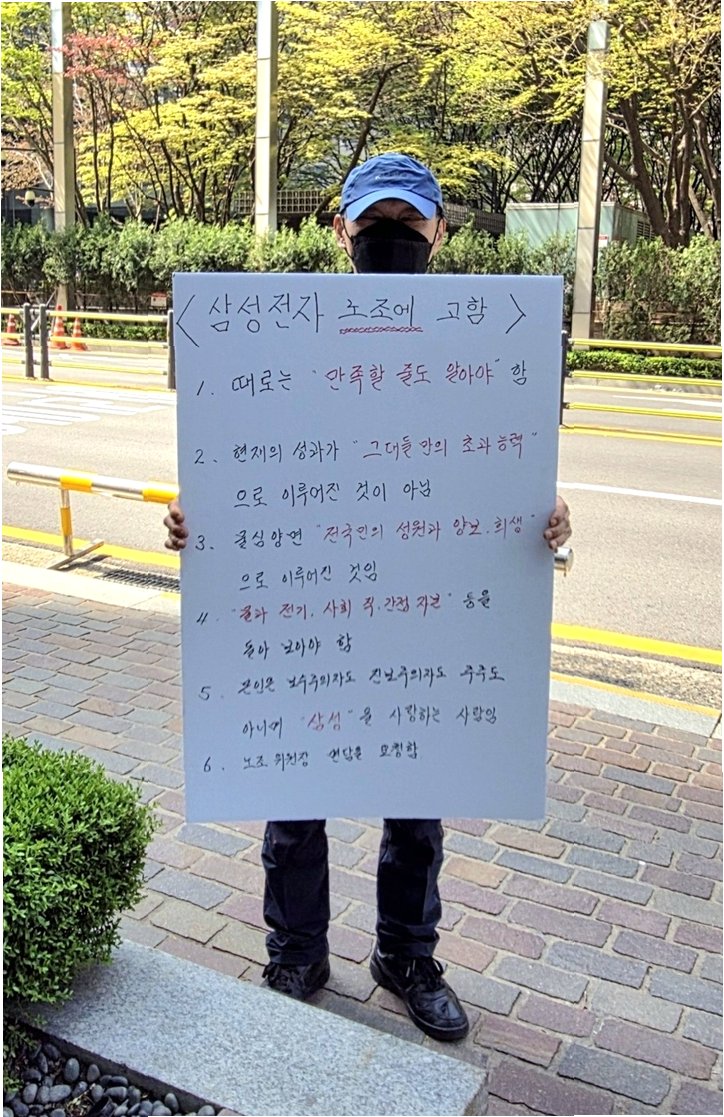 < 삼성전자 노조에 고함 >
1. 때로는 "만족할 줄도 알아야" 함
2. 현재의 성과가 "그대들만의 초과능력"
으로 이루어진 것이 아님
3. 물심양면 "전국민의 성원과 양보.희생"
으로 이루어진 것임
4. "물과 전기. 사회 직.간접 자본" 등을
돌아 보아야 함
5. 본인은 보수주의자도 진보주의자도 주주도
아니며 "삼성"을 사랑하는 사람임
6. 노조 위원장 면담을 요청함